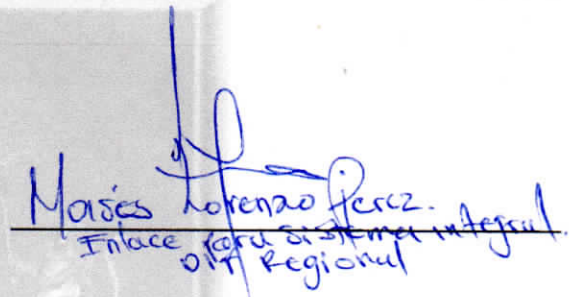 Moisés Lorenzo Pérez.
Enlace para sistema integral.
DIF Regional